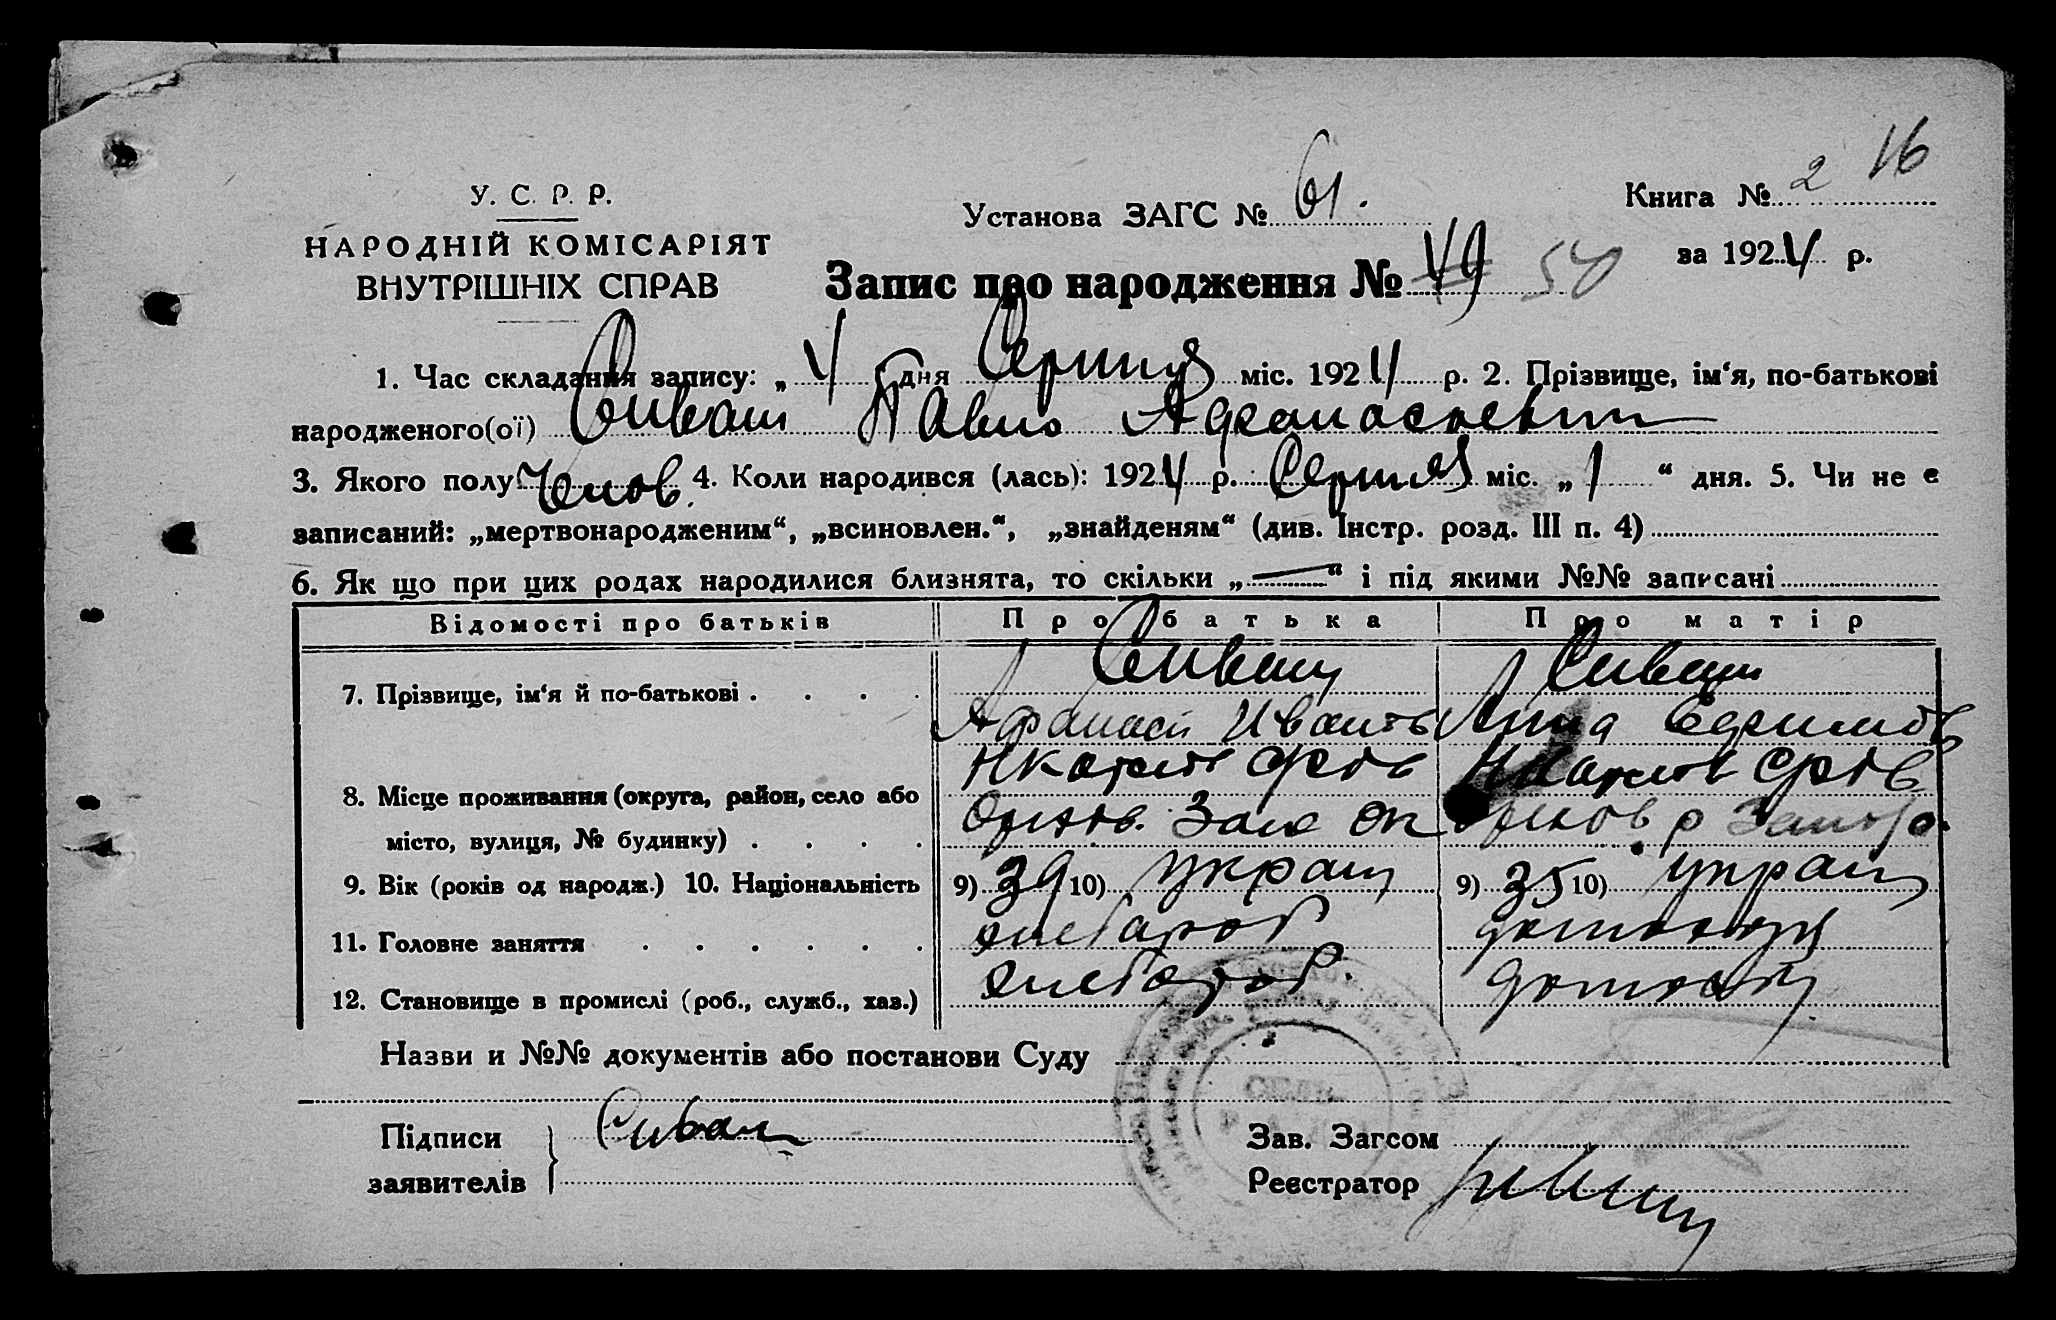 16
У. С. Р. Р.
НАРОДНІЙ КОМІСАРІЯТ
ВНУТРІШНІХ СПРАВ
Установа ЗАГС № 61.
Книга № 2
за 1924 р.
Запис про народження № 49 50
1. Час складання запису: „ 4 дня Серпня міс. 1924 р. 2. Прізвище, ім‘я, по-батькові
народженого(ої) Сиваш Павло Афанасиевич
3. Якого полу Челов. 4. Коли народився (лась): 1924 р. Серпня міс. „ 1 “ дня. 5. Чи не є
записаний: „мертвонародженим“, „всиновлен.“, „знайденям“ (див. Інстр. розд. III п. 4)
6. Як що при цих родах народилися близнята, то скільки „ — “ і під якими №№ записані
Відомості про батьків Про батька Про матір
7. Прізвище, ім‘я й по-батькові . . . . Сиваш Сиваш
Афанасій Иванов Анна Ефимов
8. Місце проживання (округа, район, село або
місто, вулиця, № будинку) . . . .
9. Вік (років од народж.) 10. Національність 9) 39 10) украин 9) 35 10) украин
11. Головне заняття . . . . . . хлебороб домохоз
12. Становище в промислі (роб., служб., хав.) хлебороб. домохоз
Назви и №№ документів або постанови Суду
Підписи
заявителів
Сиваш
Зав. Загсом
Реєстратор